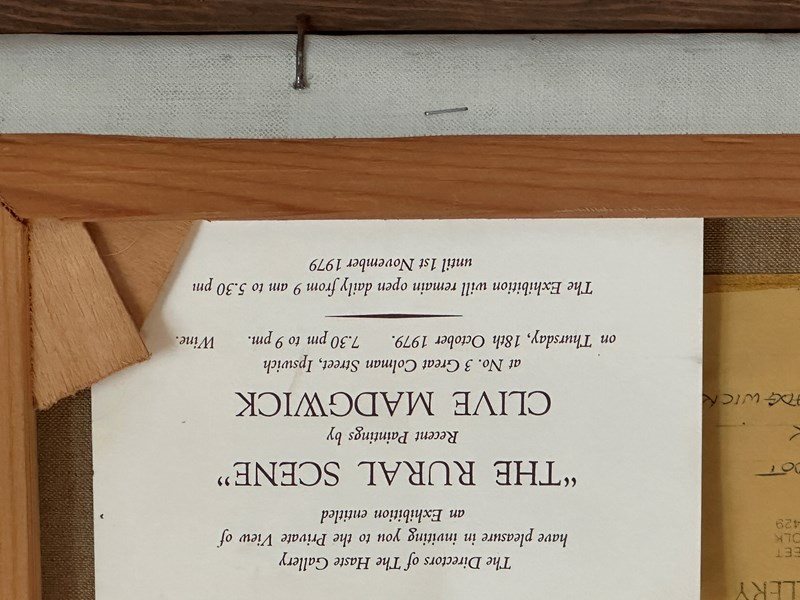 The Directors of The Haste Gallery
have pleasure in inviting you to the Private View of
an Exhibition entitled
"THE RURAL SCENE"
Recent Paintings by
CLIVE MADGWICK
at No. 3 Great Colman Street, Ipswich
on Thursday, 18th October 1979. 7.30 pm to 9 pm. Wine.
The Exhibition will remain open daily from 9 am to 5.30 pm
until 1st November 1979
LLERY
EET
OLK
429